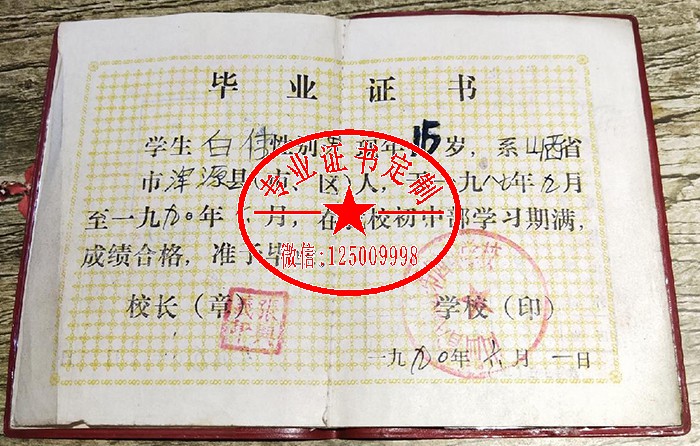 毕业证书
学生白伟性别男 现年15岁，系山西省
市浑源县（市、区）人，于一九八七年九月
至一九九〇年 月，在 校初中部学习期满，
成绩合格，准予毕
校长（章） 学校（印）
一九九〇年六月一日
专业证书定制
微信:125009998